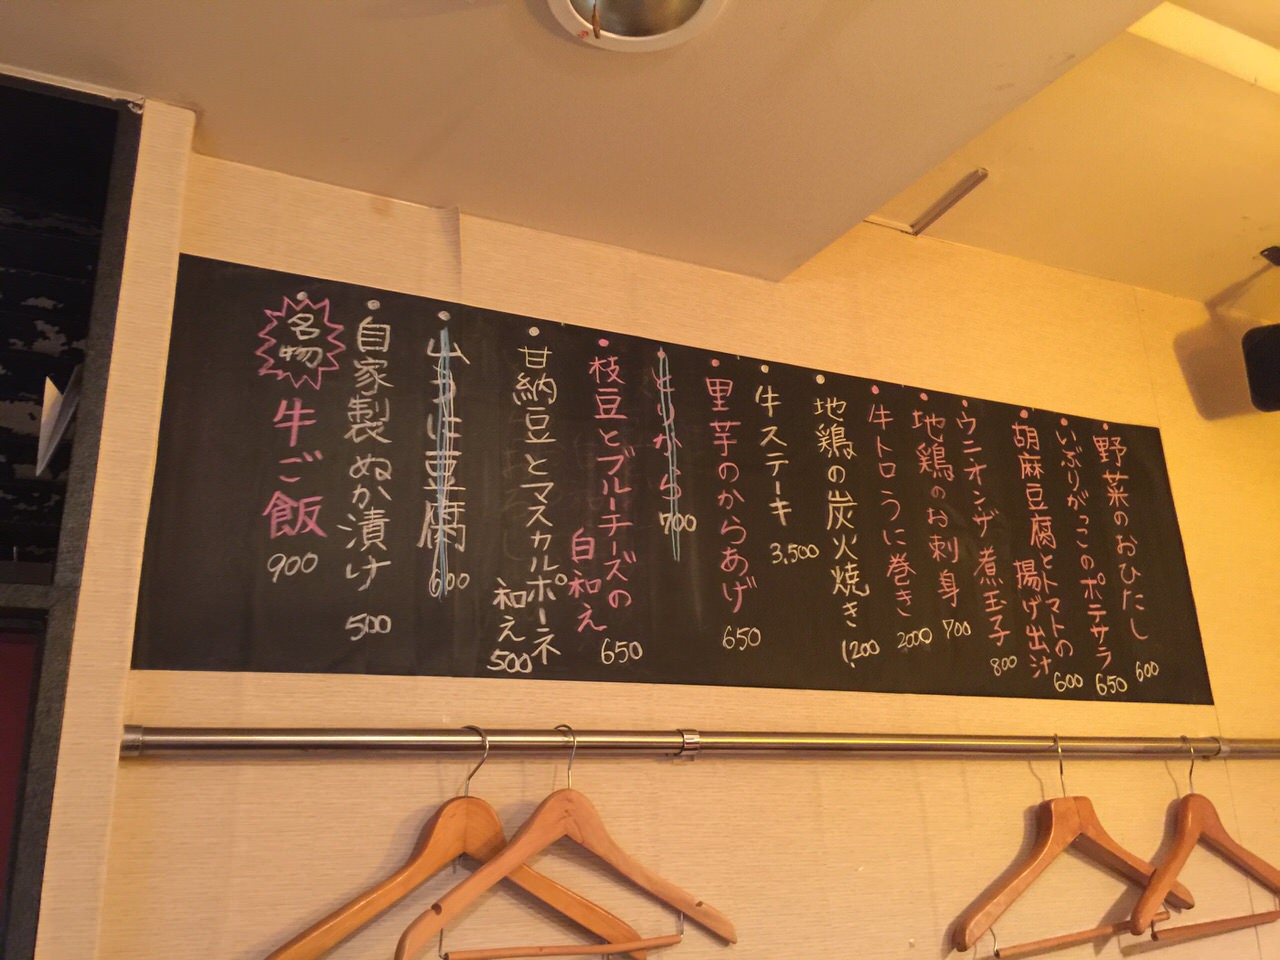 野菜のおひたし 600
いぶりがっこのポテサラ 650
胡麻豆腐とトマトの
揚げ出汁 600
ウニオンザ煮玉子 800
地鶏のお刺身 700
牛トロうに巻き 2000
地鶏の炭火焼き 1,200
牛ステーキ 3,500
里芋のからあげ 650
とりから 700
枝豆とブルーチーズの
白和え 650
甘納豆とマスカルポーネ
和え 500
出うに豆腐 600
自家製ぬか漬け 500
名物
牛ご飯 900